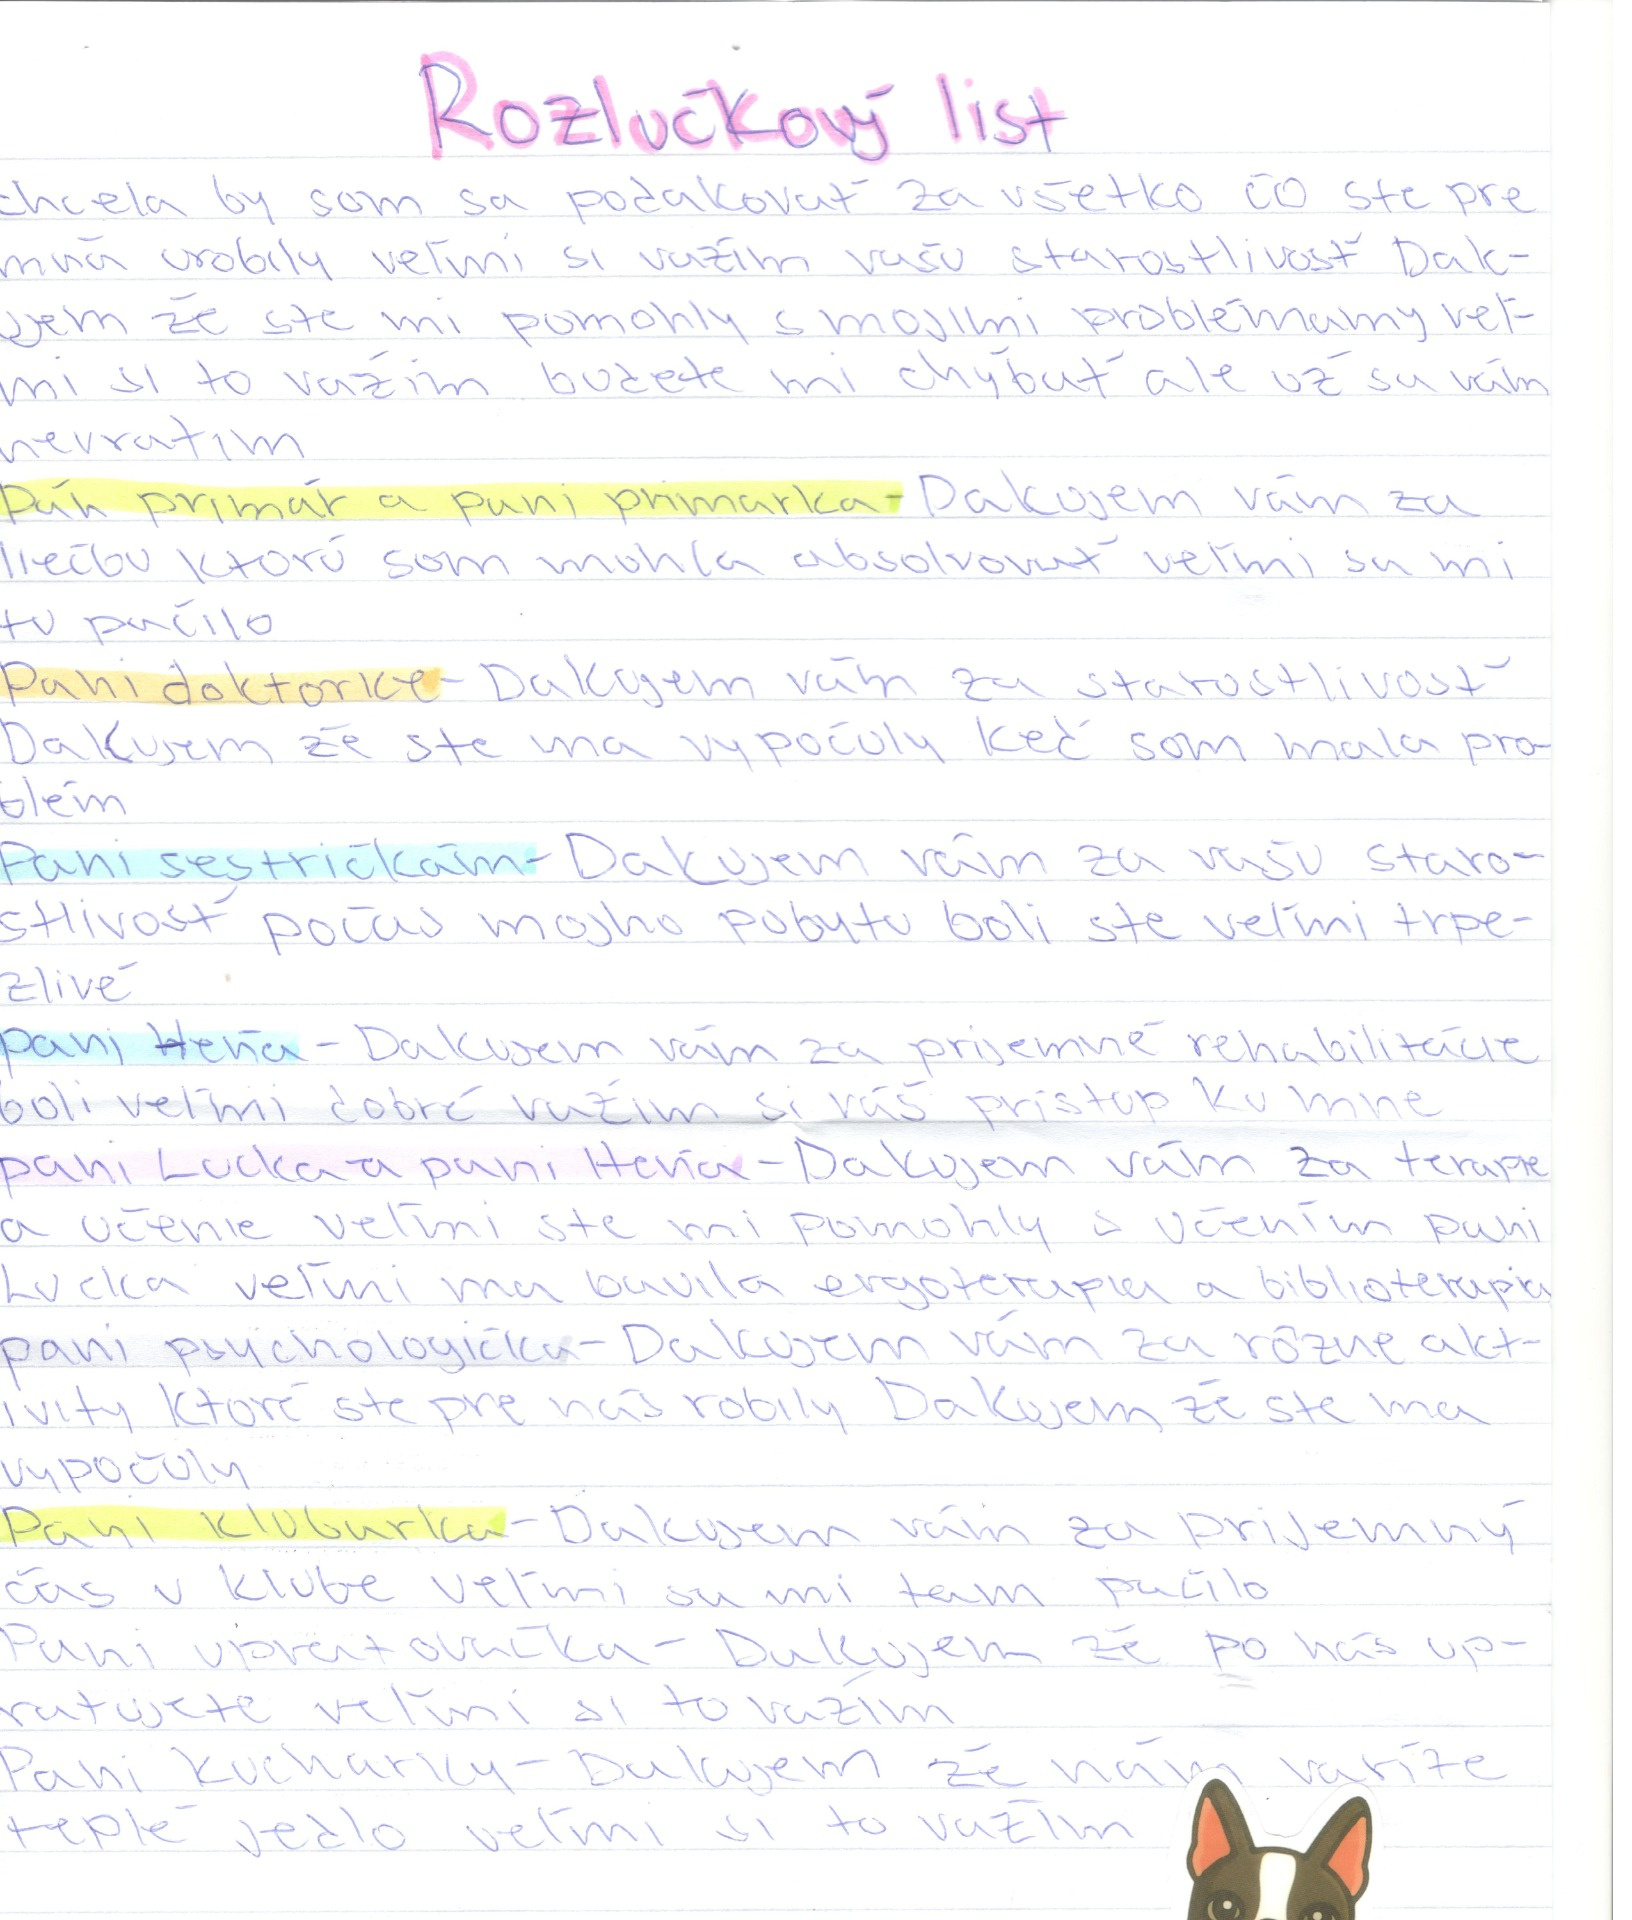 Rozlučkový list
chcela by som sa poďakovať za všetko čo ste pre
mňa urobily veľmi si važím vašu starostlivosť Dak-
ujem že ste mi pomohly s mojimi problémamy veľ-
mi si to važím budete mi chýbať ale už sa vám
nevratim
Pán primár a pani primarka - Dakujem vám za
liečbu ktorú som mohla absolvovať veľmi sa mi
tu pačilo
Pani doktorke - Dakujem vám za starostlivosť
Dakujem že ste ma vypočuly keď som mala pro-
blém
Pani sestričkám - Dakujem vám za vašu staro-
stlivosť počas mojho pobytu boli ste veľmi trpe-
zlivé
pani Heňa - Dakujem vám za prijemné rehabilitácie
boli veľmi dobré važim si váš pristup ku mne
pani Lucka a pani Heňa - Dakujem vám za terapie
a učenie veľmi ste mi pomohly s učením pani
Lucka veľmi ma bavila ergoterapia a biblioterapia
pani psychologička - Dakujem vám za rôzne akt-
ivity ktoré ste pre nás robily Dakujem že ste ma
vypočuly
Pani klubarka - Dakujem vám za prijemný
čas v klube veľmi sa mi tam pačilo
Pani upratovačka - Dakujem že po nás up-
ratujete veľmi si to važím
Pani kucharky - Dakujem že nám varíte
teplé jedlo veľmi si to važím